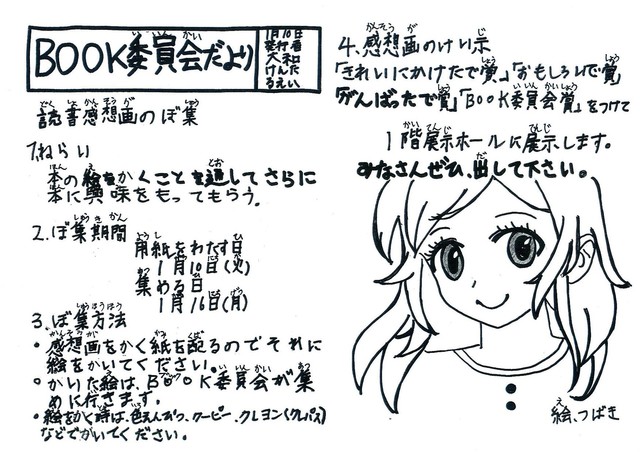 BOOK委員会だより
1月10日
発行者
大和
けんた
るえい
読書感想画のぼ集
1.ねらい
本の絵をかくことを通してさらに
本に興味をもってもらう。
2.ぼ集期間
用紙をわたす日
1月10日(火)
集める日
1月16日(月)
3.ぼ集方法
・感想画をかく紙を配るのでそれに
絵をかいてください。
・かいた絵は、BOOK委員会が集
めに行きます。
・絵をかく時は、色えんぴつ、クーピー、クレヨン(クレパス)
などでかいてください。
4.感想画のけい示
「きれいにかけたで賞」「おもしろいで賞」
「がんばったで賞」「BOOK委員会賞」をつけて
1階展示ホールに展示します。
みなさんぜひ、出して下さい。
絵、つばき